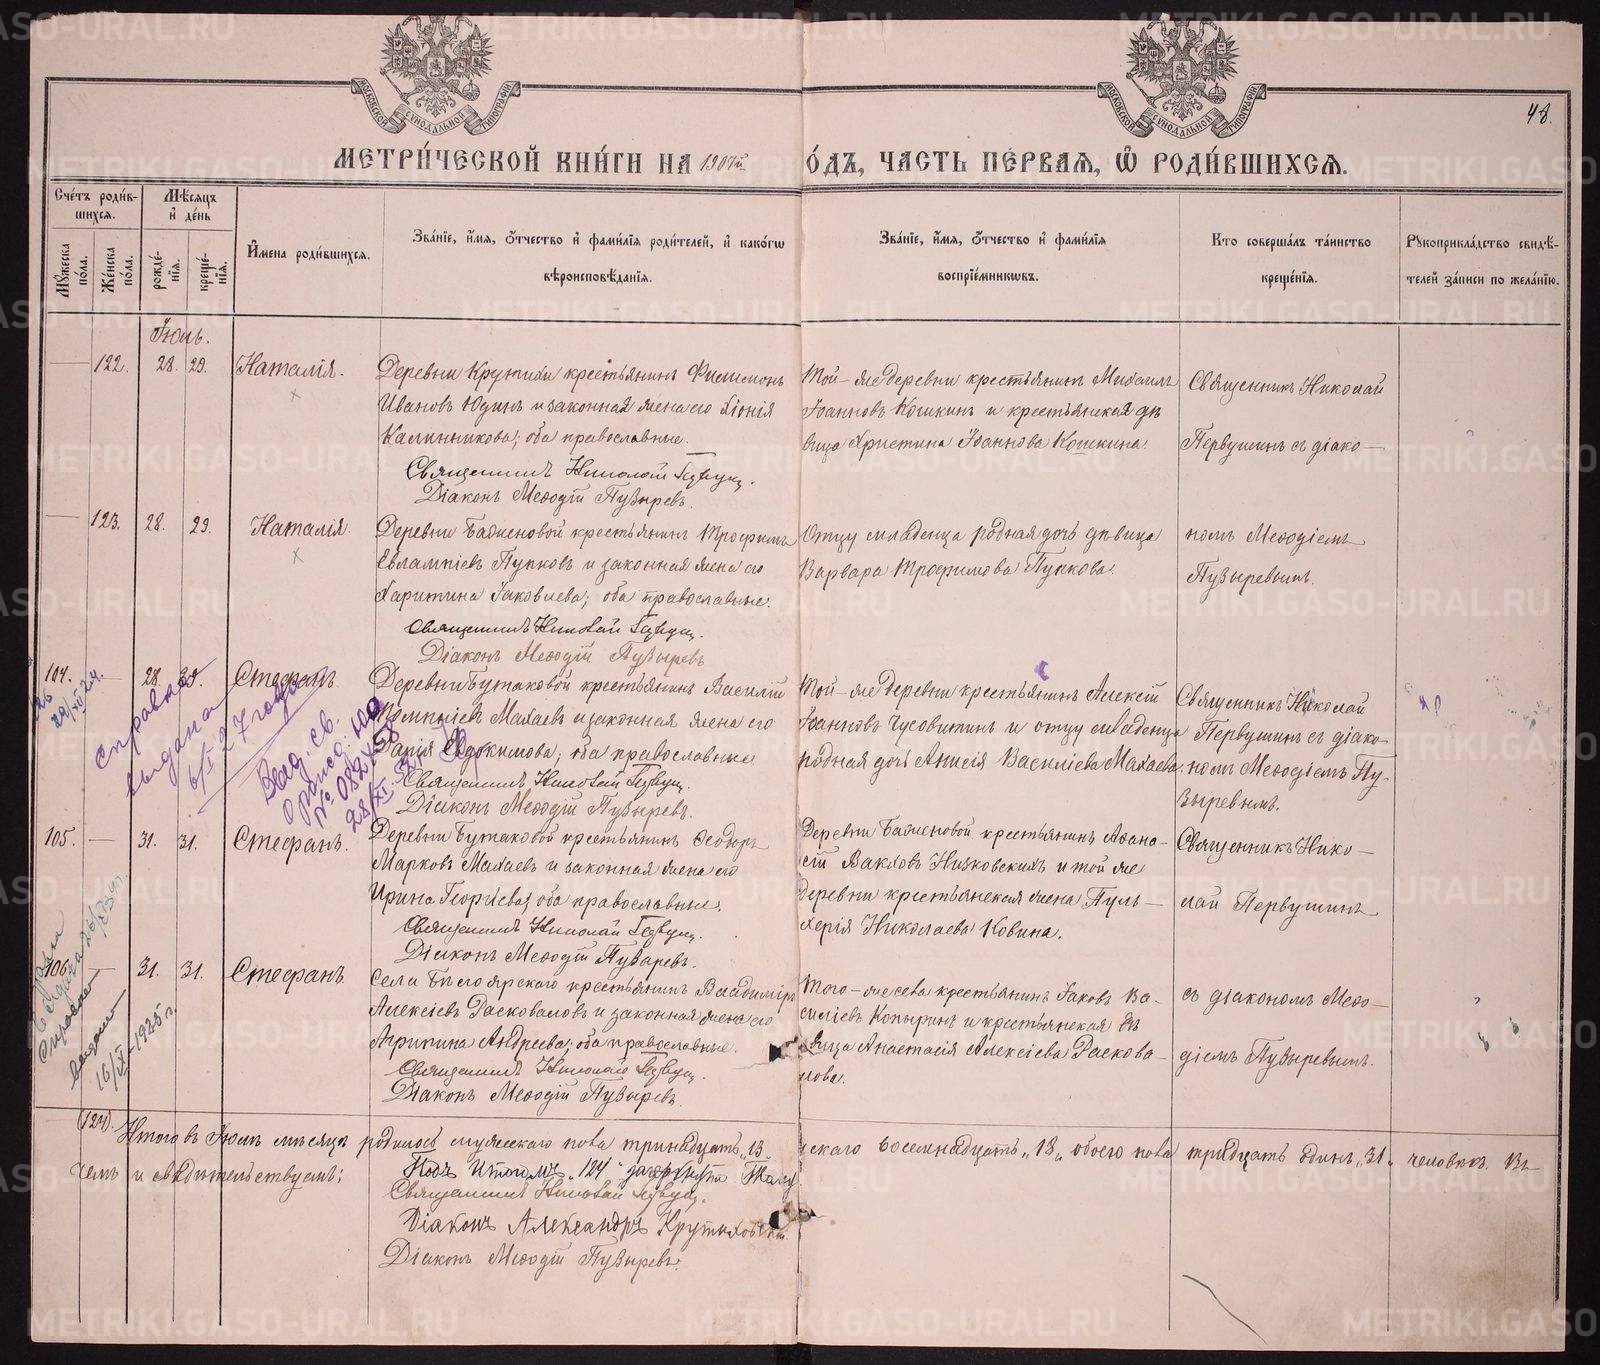 48.
МЕТРИ́ЧЕСКОЙ КНИ́ГИ НА 1907й
О́ДЪ, ЧАСТЬ ПЕ́РВАЯ, Ѿ РОДИ́ВШИХСЯ.
Сче́тъ роди́в-
шихся.
Мѣ́сяцъ
и҆ де́нь
Мꙋ́жеска
по́ла.
Же́нска
по́ла.
рожде́-
нїя.
креще́-
нїя.
И҆мена роди́вшихся.
Зва́нїе, и҆́мя, ѻ҆́тчество и҆ фами́лїя роди́телей, и҆ како́гѡ
вѣроисповѣ́данїя.
Зва́нїе, и҆́мя, ѻ҆́тчество и҆ фами́лїя
воспрїе́мникѡвъ.
Кто соверша́лъ та́инство
креще́нїя.
Рꙋкоприкла́дство свидѣ́-
телей за́писи по жела́нїю.
Іюль.
122. 28. 29. Наталія.
Деревни Крутихи крестьянинъ Филимонъ
Ивановъ Юдинъ и законная жена его Хіонія
Калинникова; оба православные.
Священникъ Николай Первуш.
Діаконъ Меѳодій Пузыревъ.
Той-же деревни крестьянинъ Михаилъ
Іоанновъ Кошкинъ и крестьянская дѣ
вица Христина Іоаннова Кошкина.
Священникъ Николай
Первушинъ съ діако-
123. 28. 29. Наталія.
крестьянинъ Трофимъ
Евлампіевъ Пупковъ и законная жена его
Харитина Іаковлева; оба православные.
Священникъ Николай Первуш.
Діаконъ Меѳодій Пузыревъ
Отцу младенца родная дочь дѣвица
Варвара Трофимова Пупкова.
номъ Меѳодіемъ
Пузыревымъ.
104. 28. 31. Стефанъ.
Деревни Бутаковой крестьянинъ Василій
Махаевъ и законная жена его
Дарія Евдокимова; оба православные
Священникъ Николай Первуш.
Діаконъ Меѳодій Пузыревъ.
Той-же деревни крестьянинъ Алексій
Іоанновъ Чусовитинъ и отцу младенца
родная дочь Анисія Василіева Махаева.
Священникъ Николай
Первушинъ съ діако-
номъ Меѳодіемъ Пу-
зыревымъ.
справка
выдана
6/I 27 года
Выд. св.
о рожд.
28/XI
105. 31. 31. Стефанъ.
Деревни Бутаковой крестьянинъ Ѳеодоръ
Марковъ Махаевъ и законная жена его
Ирина Георгіева; оба православные.
Священникъ Николай Первуш.
Діаконъ Меѳодій Пузыревъ.
крестьянинъ Аѳана-
сій Низковскихъ и той же
деревни крестьянская жена Пуль-
херія Николаева Ковина.
Священникъ Нико-
лай Первушинъ
106. 31. 31. Стефанъ.
Села Бѣлоярскаго крестьянинъ Владиміръ
Алексіевъ Расковаловъ и законная жена его
Агрипина Андреева; оба православные.
Священникъ Николай Первуш.
Діаконъ Меѳодій Пузыревъ.
Того-же села крестьянинъ Іаковъ Ва-
силіевъ Копыринъ и крестьянская дѣ
вица Анастасія Алексіева Раскова-
лова.
съ діакономъ Меѳо-
діемъ Пузыревымъ.
Справка
выдана
16/IX-1925 г.
(124). Итого въ Іюлѣ мѣсяцѣ родилось мужескаго пола тринадцать „13„
нскаго восемнадцать „18„ обоего пола тридцать одинъ „31„ человѣкъ. Въ
чемъ и свидѣтельствуемъ:
Священникъ Николай Первуш.
Діаконъ Александръ Крутиховскій.
Діаконъ Меѳодій Пузыревъ.
METRIKI.GASO-URAL.RU